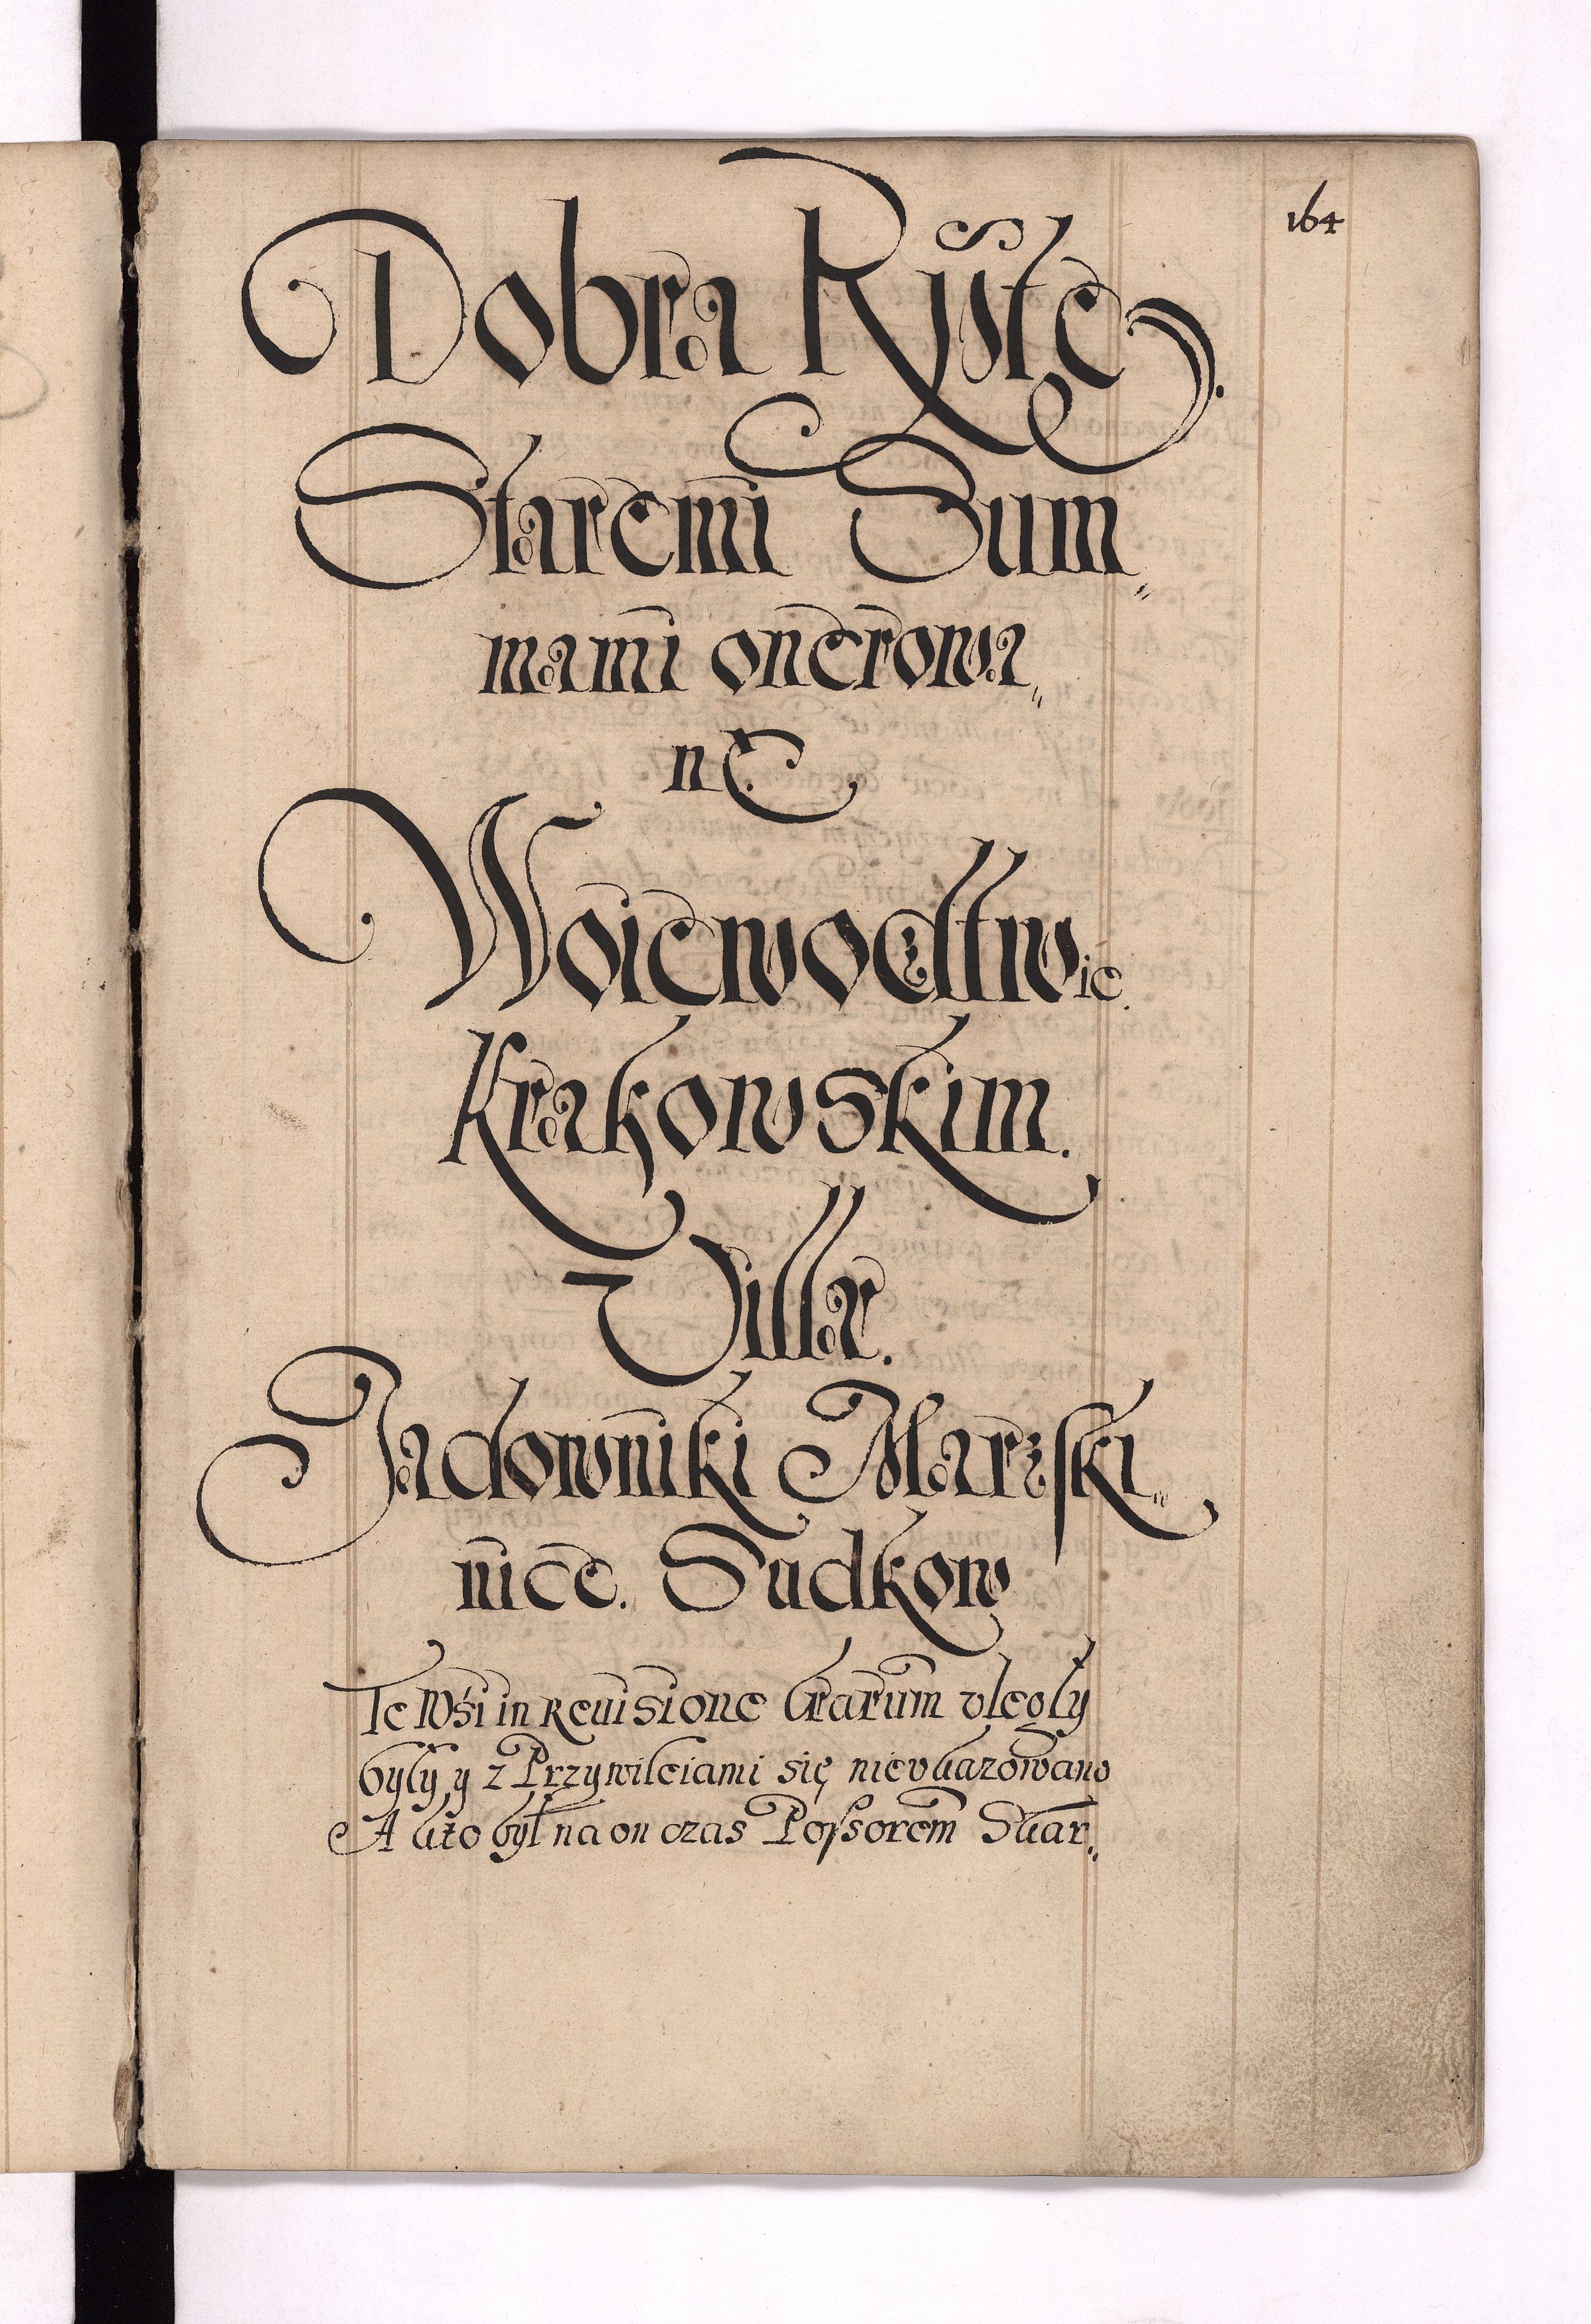 164
Dobra Rzſte.
Staremi Sum„
mami onerowa„
ne
Woiewodztwie.
Krakowskim.
Villæ.
Jadowniki Marzski„
nice. Sudkow
Te Wśi in Reuisione Grarum vległy
były y z Przywileiami się nie vkazowano
A kto był na on czas Poſsorem Skar„